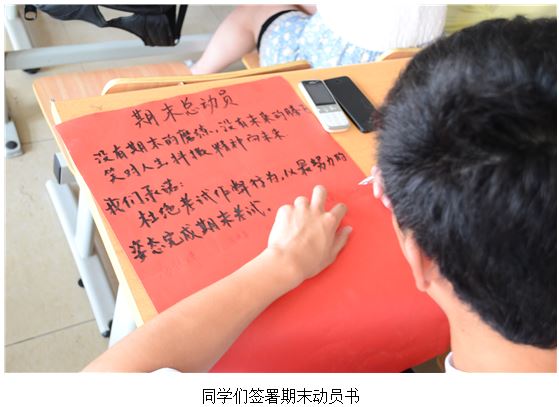 期末总动员
没有期末的磨练,没有未来的腾飞
笑对人生抖擞精神向未来
我们承诺:
杜绝考试作弊行为,以最努力的
姿态完成期末考试。
同学们签署期末动员书